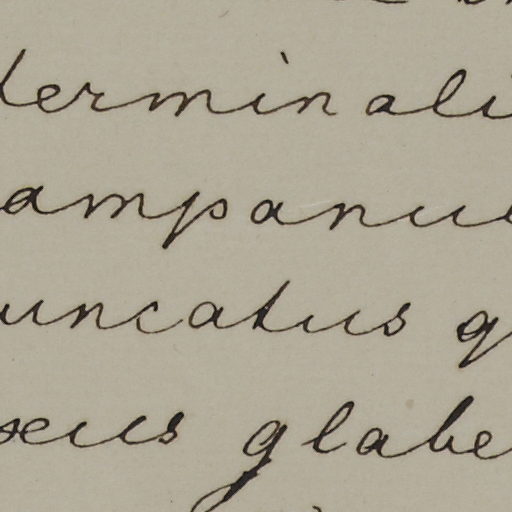 terminali
ampanul
uncatus g
seus glabe